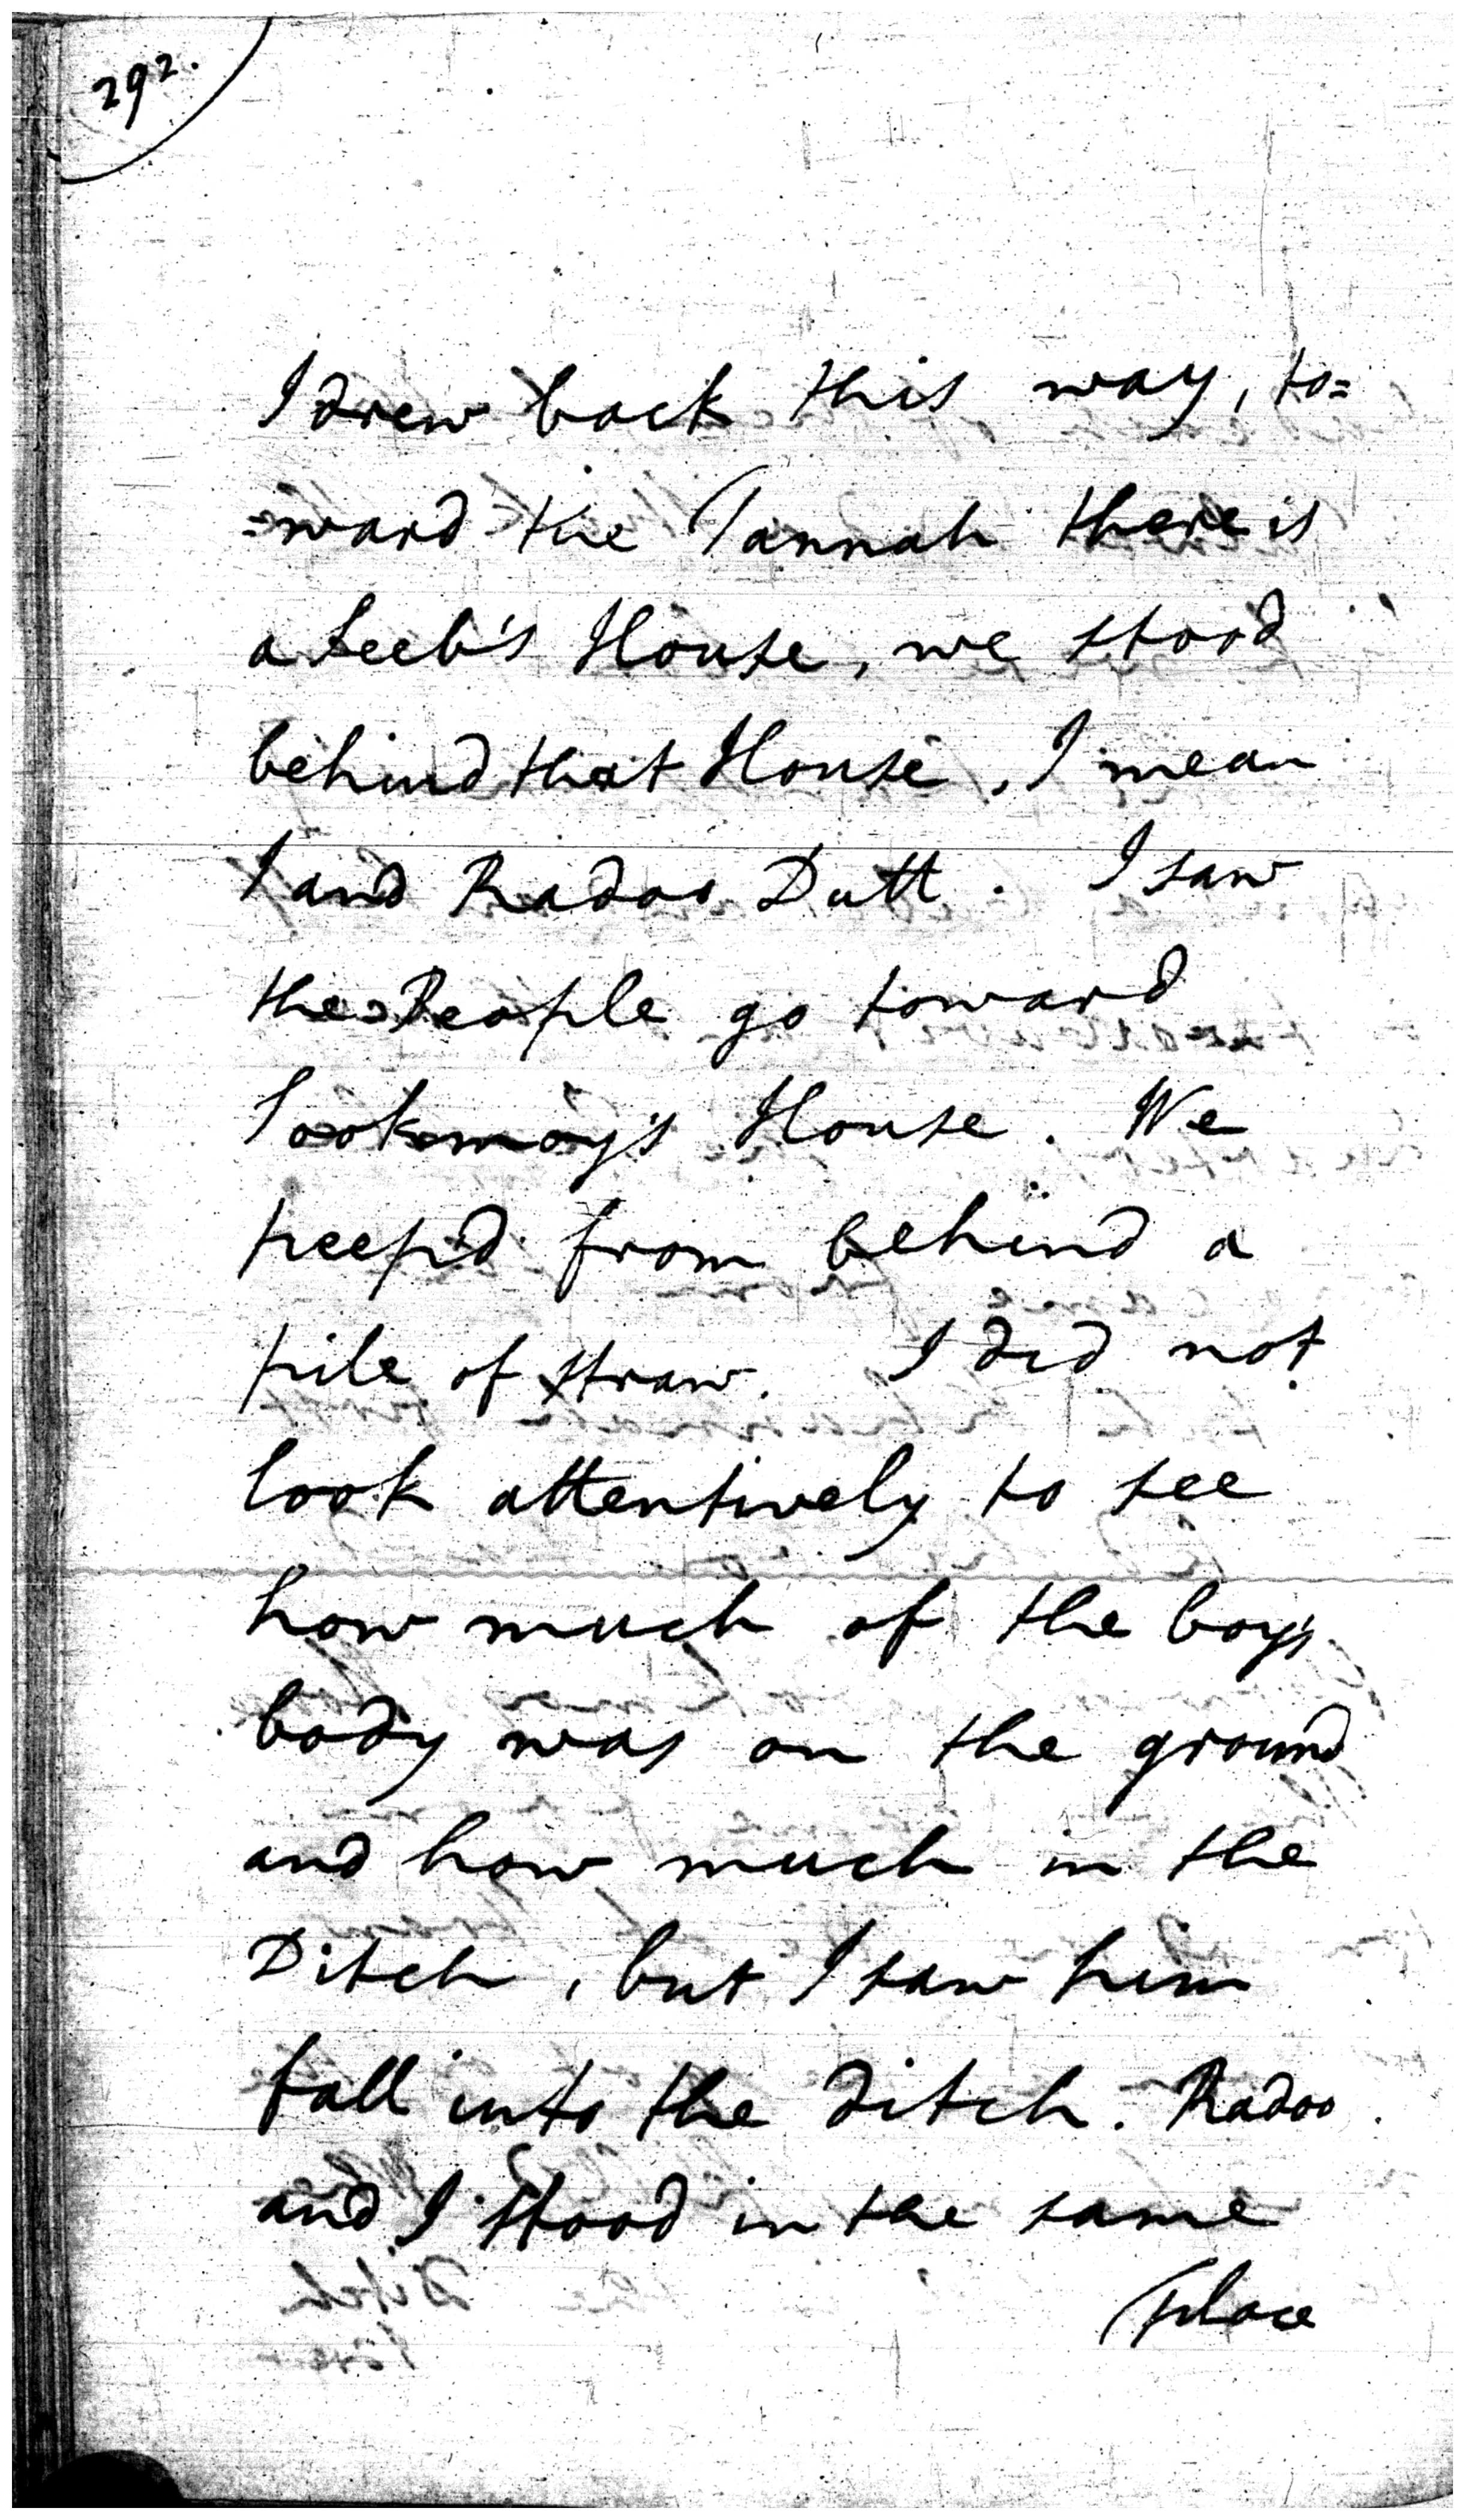 292.
I drew back this way, to=
=ward the Tannah there is
a Seeb's House, we stood
behind that House, I mean
I and Radoo Dutt. I saw
the People go toward
Sookmoy's House. We
peep'd from behind a
pile of straw. I did not
look attentively to see
how much of the boy's
body was on the ground
and how much in the
Ditch, but I saw him
fall into the ditch. Radoo
and I stood in the same
place